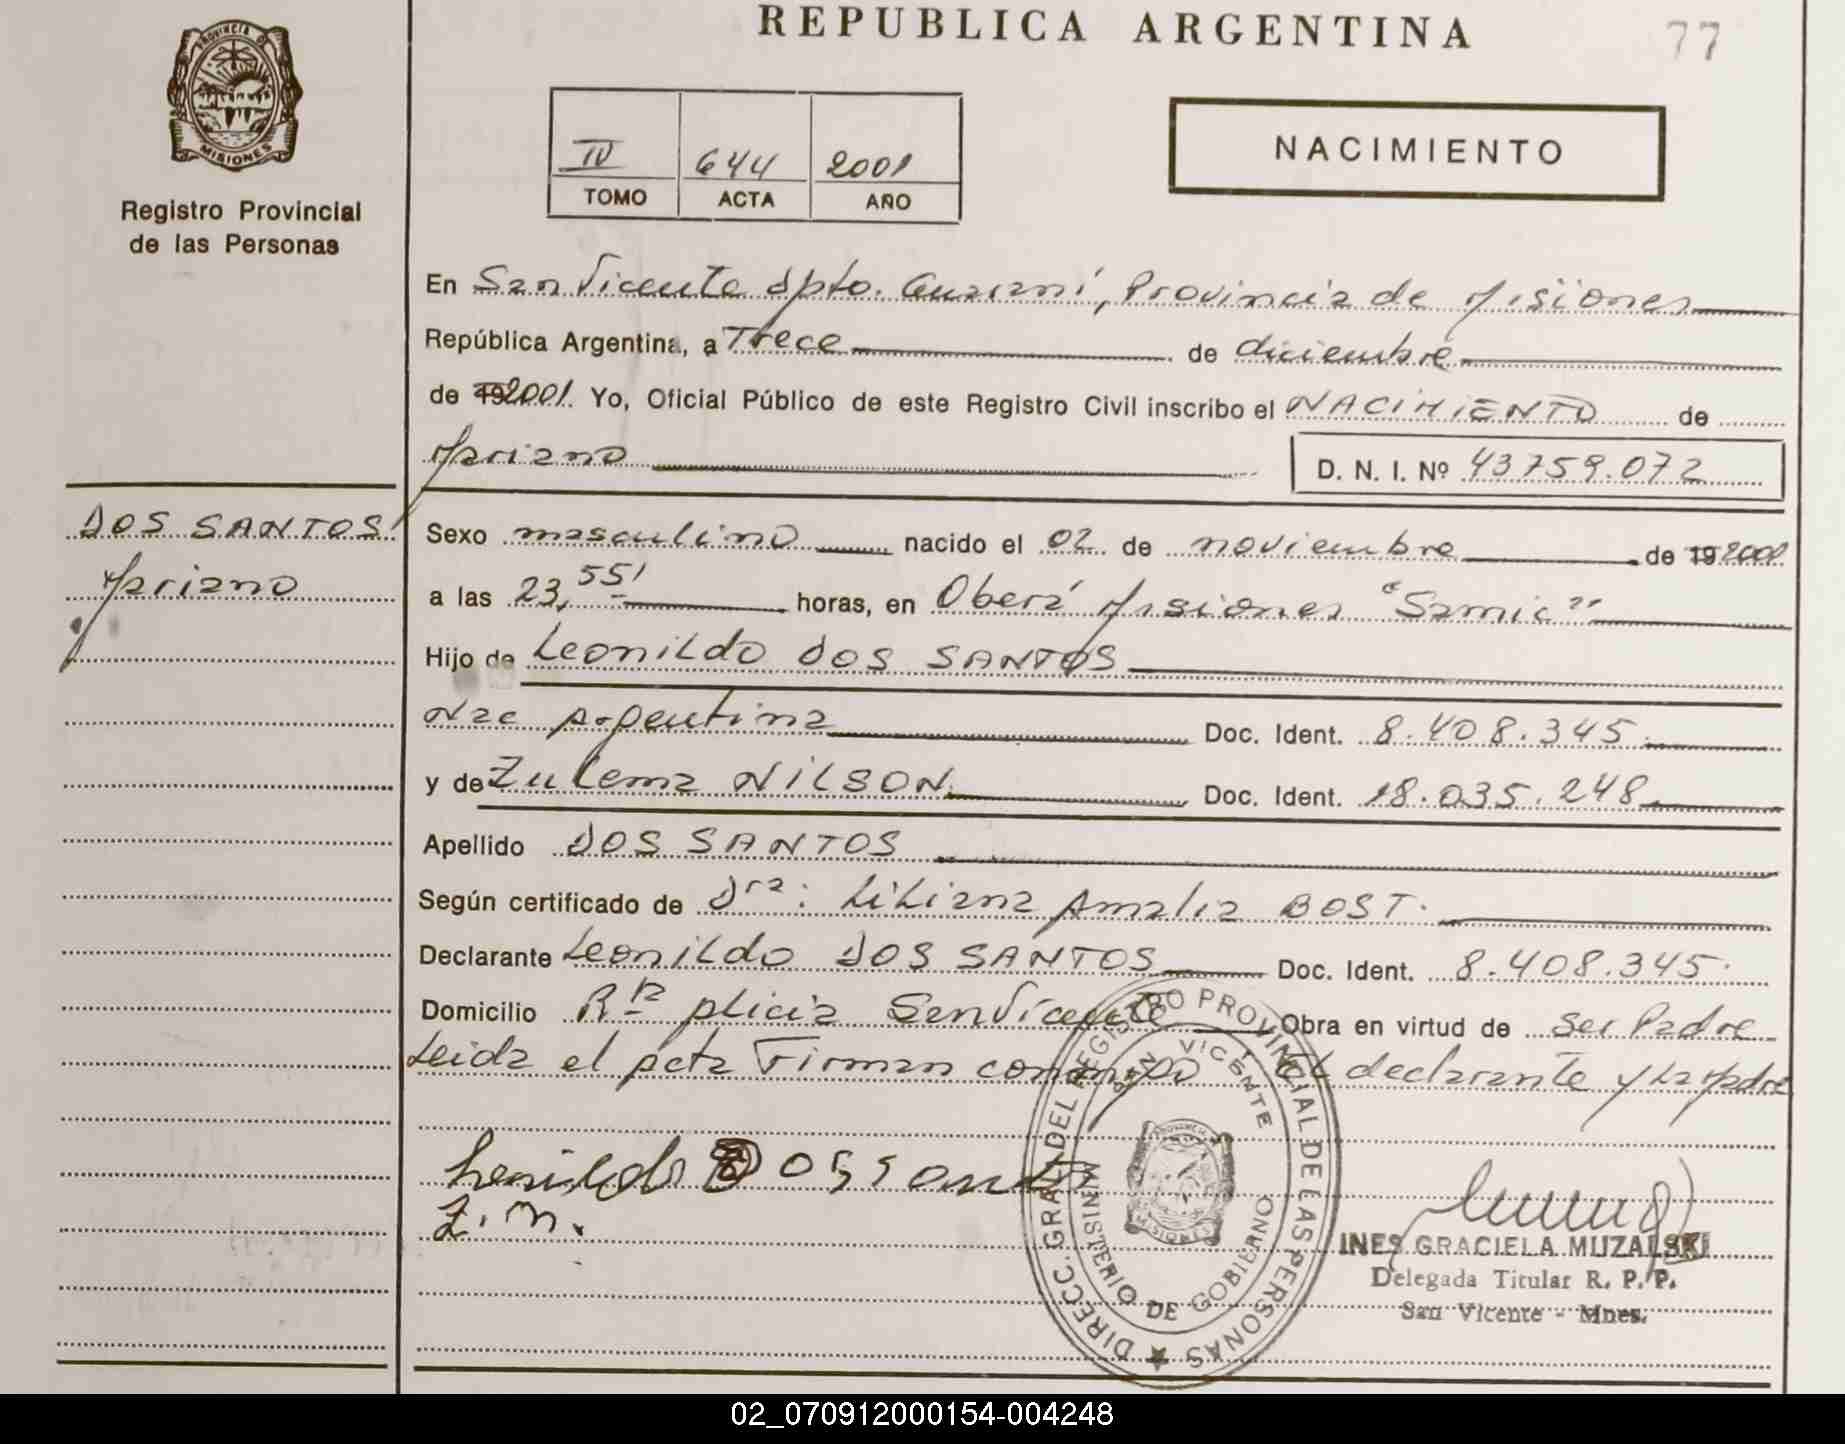 REPUBLICA ARGENTINA
77
PROVINCIA DE
MISIONES
Registro Provincial
de las Personas
IV 644 2001
TOMO ACTA AÑO
NACIMIENTO
En San Vicente dpto. Guaraní, Provincia de Misiones
República Argentina, a Trece de diciembre
de 19 2001. Yo, Oficial Público de este Registro Civil inscribo el NACIMIENTO de
Mariano
D. N. I. Nº 43.759.072
DOS SANTOS
Mariano
Sexo masculino nacido el 02 de noviembre de 19 2001
a las 23,55' horas, en Oberá Misiones "Samic"
Hijo de Leonildo DOS SANTOS
Nac Argentina Doc. Ident. 8.408.345
y de Zulema NILSON Doc. Ident. 18.035.248
Apellido DOS SANTOS
Según certificado de Dra: Liliana Amalia BOST.
Declarante Leonildo DOS SANTOS Doc. Ident. 8.408.345.
Domicilio San Vicente Obra en virtud de Ser Padre
Leida el Acta Firman conmigo El declarante y La Madre
Z. N.
DIRECC. GRAL. DEL REGISTRO PROVINCIAL DE LAS PERSONAS
SAN VICENTE
MINISTERIO DE GOBIERNO
PROVINCIA DE
MISIONES
INES GRACIELA MUZALSKI
Delegada Titular R. P. P.
San Vicente - Mnes.
02_070912000154-004248